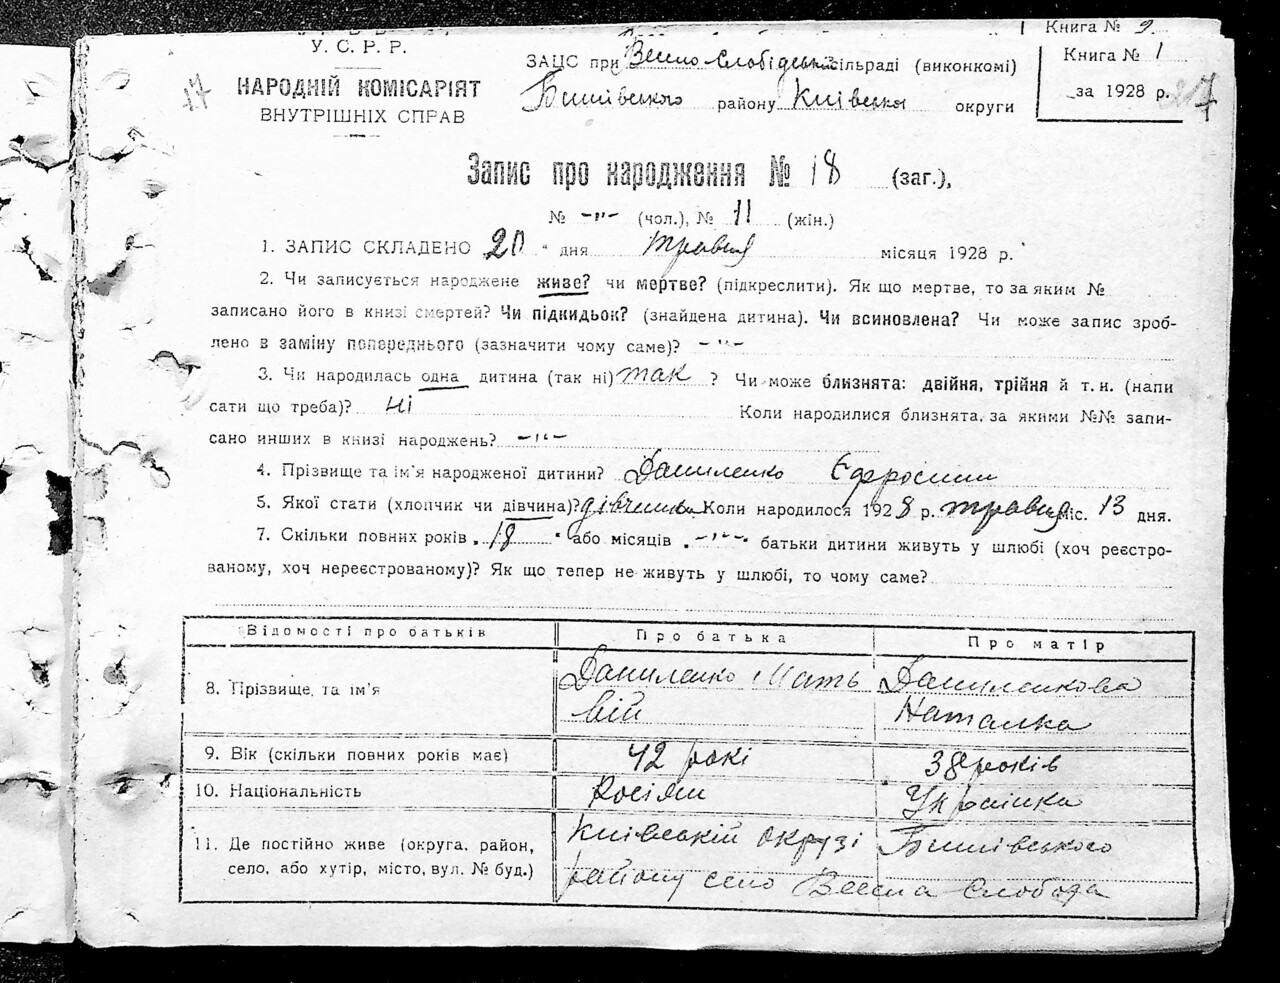 Книга № 9
У. С. Р. Р.
НАРОДНІЙ КОМІСАРІЯТ
ВНУТРІШНІХ СПРАВ
17
ЗАЦС при Весело Слобідській сільраді (виконкомі)
Бишівського району Київської округи
Книга № 1
за 1928 р.
Запис про народження № 18 (заг.),
№ -"- (чол.), № 11 (жін.)
1. ЗАПИС СКЛАДЕНО 20 " дня травня місяця 1928 р.
2. Чи записується народжене живе? чи мертве? (підкреслити). Як що мертве, то за яким №
записано його в книзі смертей? Чи підкидьок? (знайдена дитина). Чи всиновлена? Чи може запис зроб-
лено в заміну попереднього (зазначити чому саме)? -"-
3. Чи народилась одна дитина (так ні) так ? Чи може близнята: двійня, трійня й т. н. (напи
сати що треба)? ні Коли народилися близнята, за якими №№ запи-
сано инших в книзі народжень? -"-
4. Прізвище та ім'я народженої дитини? Даниленко Єфросини
5. Якої стати (хлопчик чи дівчина)? дівчинка Коли народилося 1928 р. травня міс. 13 дня.
7. Скільки повних років „ 18 " або місяців „ -"- " батьки дитини живуть у шлюбі (хоч реєстро-
ваному, хоч нереєстрованому)? Як що тепер не живуть у шлюбі, то чому саме?
Відомості про батьків Про батька Про матір
8. Прізвище та ім'я Даниленко Мать Даниленкова
вій Наталка
9. Вік (скільки повних років має) 42 рокі 38 років
10. Національність Росіян Українка
11. Де постійно живе (округа, район, Київській округі Бишівського
село, або хутір, місто, вул. № буд.) району село Весела Слобода